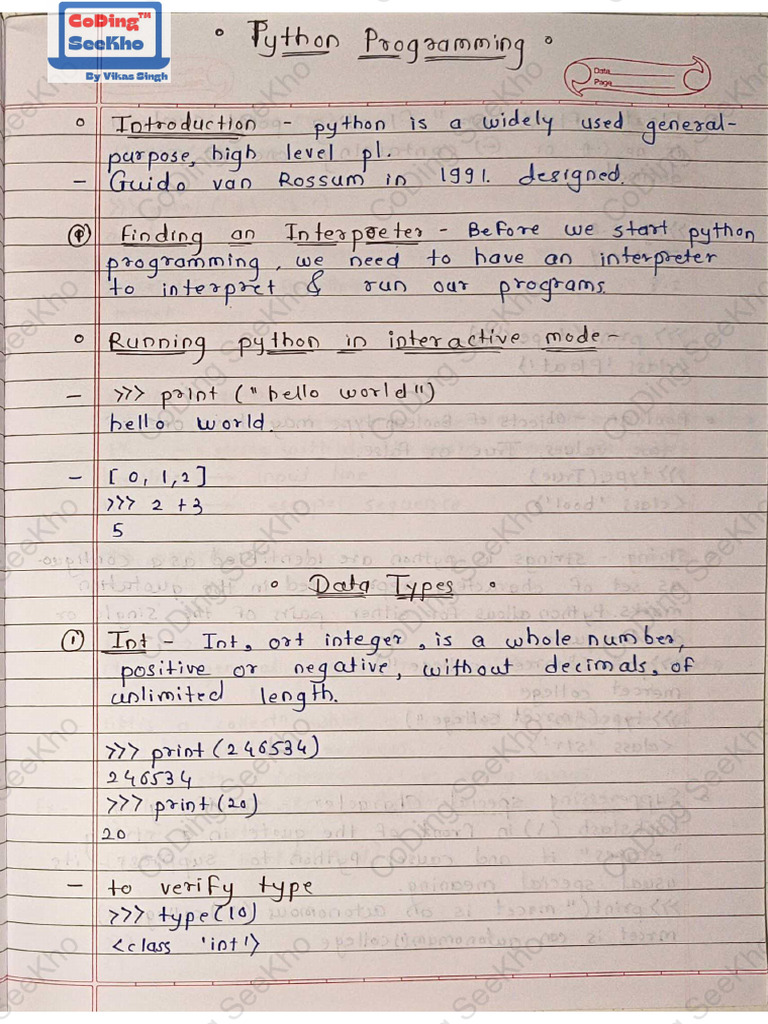 CoDing™
SeeKho
By Vikas Singh
Python Programming
Date
Page
Introduction - python is a widely used general-
purpose, high level pl.
- Guido van Rossum in 1991. designed.
Finding an Interpreter - Before we start python
programming, we need to have an interpreter
to interpret & run our programs.
Running python in interactive mode -
- >>> print ("hello world")
hello world.
- [0, 1, 2]
>>> 2 + 3
5
Data Types
① Int - Int, ort integer, is a whole number,
positive or negative, without decimals, of
unlimited length.
>>> print(246534)
246534
>>> print(20)
20
- to verify type
>>> type(10)
<class 'int'>
CoDing SeeKho